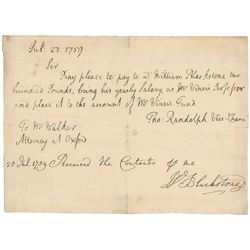 Jul. 27. 1759
Sir
Pay please to pay to Dr William Blackstone one
hundred Pounds, being his yearly Salary as Mr Viner's Professor
and place it to the account of Mr Viner's Fund
Tho: Randolph Vice-Chan:
To Mr Walker
Attorney at Oxford
29 Jul. 1759 Received the Contents by me
Wm Blackstone